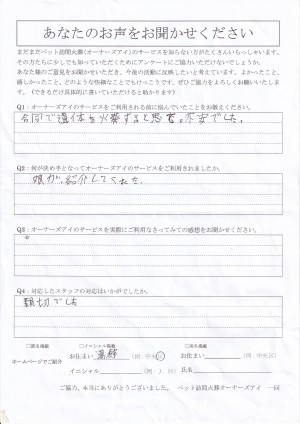 あなたのお声をお聞かせください
まだまだペット訪問火葬(オーナーズアイ)のサービスを知らない方がたくさんいらっしゃいます。
その方たちに少しでも知っていただくためにアンケートにご協力いただけないでしょうか。
あなた様のご意見をお聞かせいただき、今後の活動に反映したいと考えています。よかったこと、
嬉しかったこと、どのような些細なことでもけっこうです。ぜひご協力をよろしくお願いいたしま
す。(できるだけ具体的に書いていただけると助かります)
Q1:オーナーズアイのサービスをご利用される前に悩んでいたことをお教えください。
不安でした。
Q2:何が決め手となってオーナーズアイのサービスをご利用されましたか。
娘が、紹介してくれた.
Q3:オーナーズアイのサービスを実際にご利用なさってみての感想をお聞かせください。
Q4:対応したスタッフの対応はいかがでしたか。
親切でした
□匿名掲載 □イニシャル掲載 □実名掲載
ホームページでご紹介
お住まい (例:中央区) お住まい (例:中央区)
イニシャル (例:J.H) 氏名
ご協力、本当にありがとうございました。 ペット訪問火葬オーナーズアイ 一同